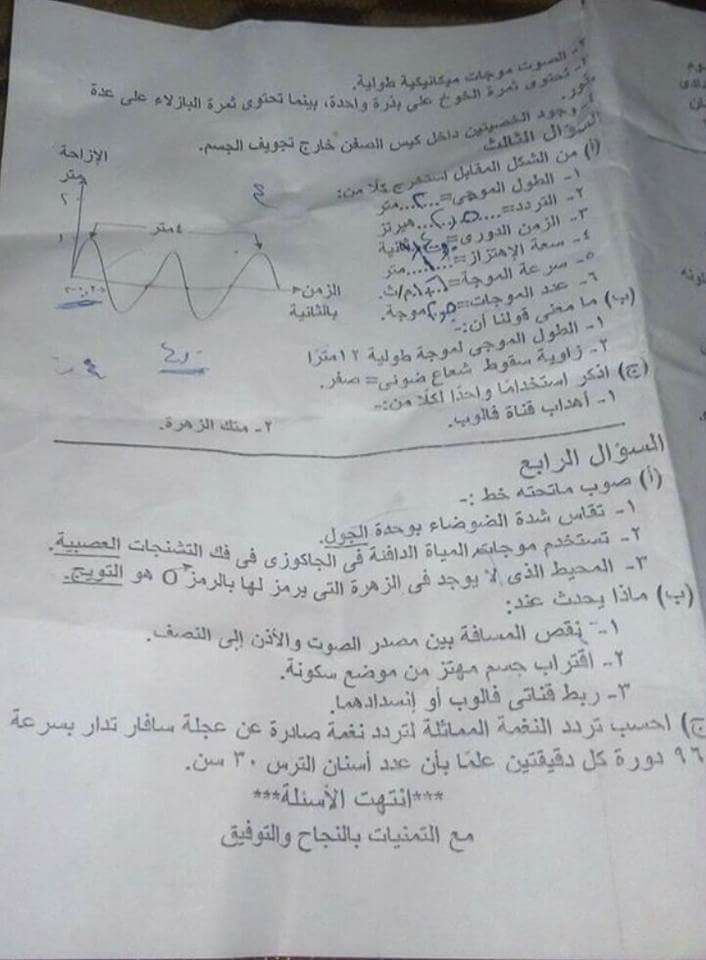 ٢- الصوت موجات ميكانيكية طولية.
٣- تحتوى ثمرة الخوخ على بذرة واحدة، بينما تحتوى ثمرة البازلاء على عدة
بذور.
٤- وجود الخصيتين داخل كيس الصفن خارج تجويف الجسم.
السؤال الثالث
(أ) من الشكل المقابل استخرج كلًا من:
١- الطول الموجى=...٢...متر
٢- التردد=........هيرتز
٣- الزمن الدورى=........ثانية
٤- سعة الاهتزاز=........متر
٥- سرعة الموجة=........م/ث.
٦- عدد الموجات=........موجة.
الإزاحة
متر
٢
١
٤متر
الزمن
بالثانية
(ب) ما معنى قولنا أن:-
١- الطول الموجى لموجة طولية ١٢مترا
٢- زاوية سقوط شعاع ضوئى= صفر.
(ج) اذكر استخدامًا واحدًا لكلًا من:-
١- أهداب قناة فالوب. ٢- متك الزهرة.
السؤال الرابع
(أ) صوب ماتحته خط :-
١- تقاس شدة الضوضاء بوحدة الجول.
٢- تستخدم موجات المياة الدافئة فى الجاكوزى فى فك التشنجات العصبية.
٣- المحيط الذى لا يوجد فى الزهرة التى يرمز لها بالرمز ♂ هو التويج.
(ب) ماذا يحدث عند:
١- نقص المسافة بين مصدر الصوت والأذن إلى النصف.
٢- اقتراب جسم مهتز من موضع سكونة.
٣- ربط قناتى فالوب أو إنسدادهما.
ج) احسب تردد النغمة المماثلة لتردد نغمة صادرة عن عجلة سافار تدار بسرعة
٩٦ دورة كل دقيقتين علمًا بأن عدد أسنان الترس ٣٠ سن.
***انتهت الأسئلة***
مع التمنيات بالنجاح والتوفيق